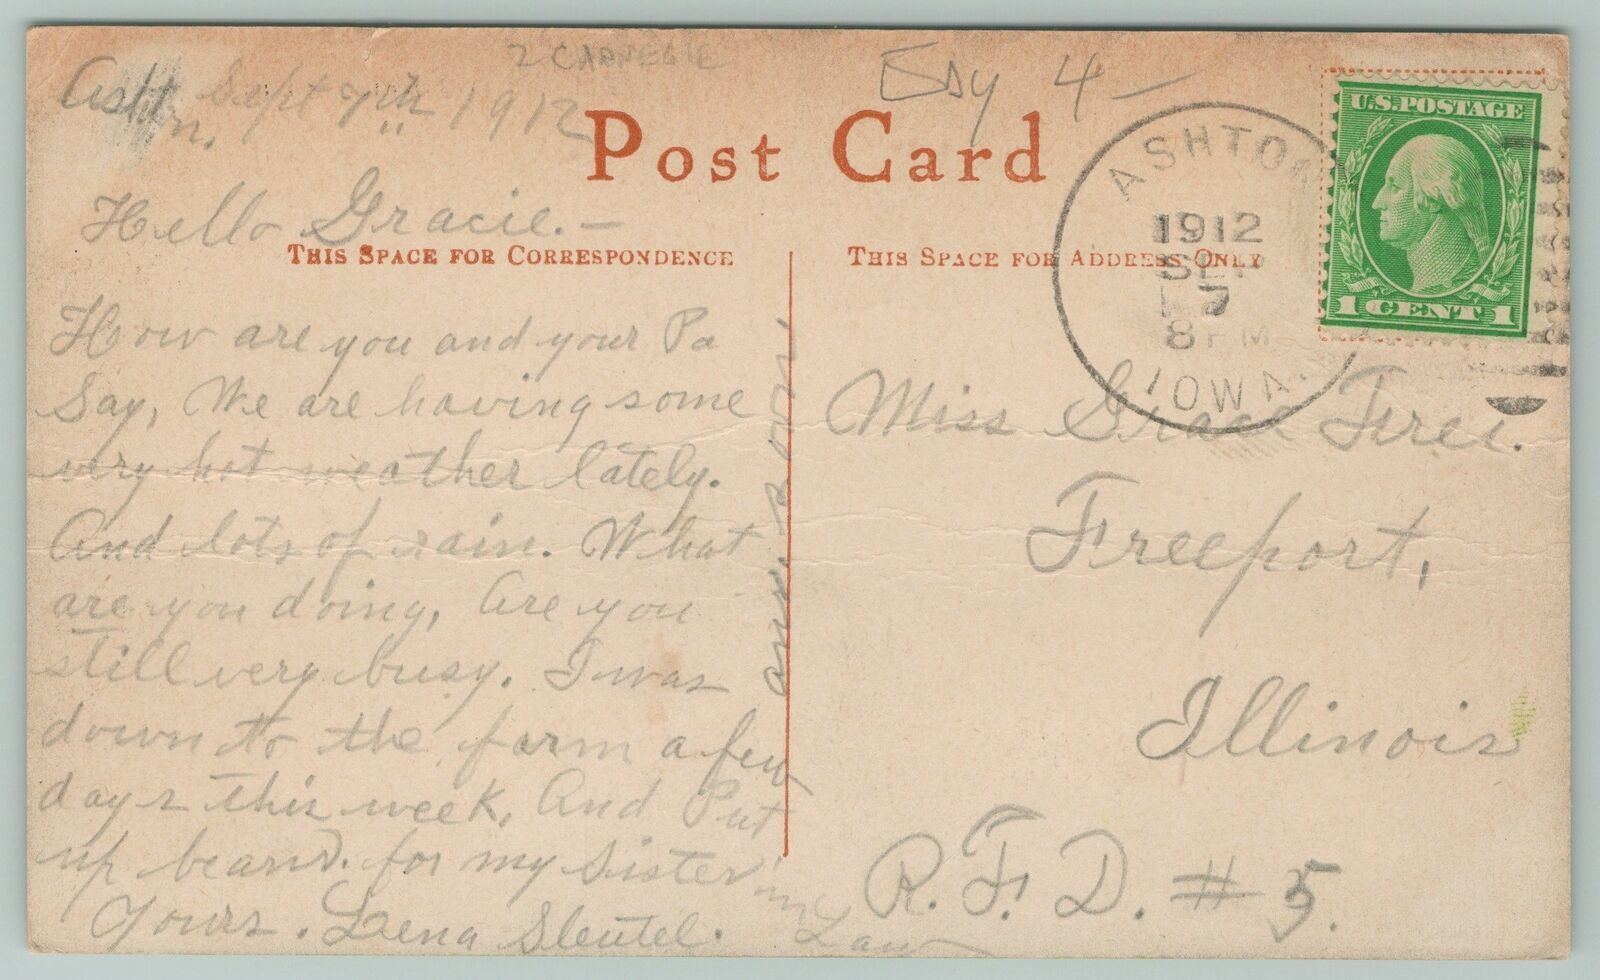 2 CARNEGIE
4 -
Sept 7th 1912
Post Card
Hello Gracie. -
THIS SPACE FOR CORRESPONDENCE
How are you and your Pa
Say, We are having some
very hot weather lately.
And lots of rain. What
are you doing, Are you
still very busy. I was
down to the farm a few
days this week, And Put
up beans. for my Sister in Law
Yours. Lena Sleutel.
ans. soon.
THIS SPACE FOR ADDRESS ONLY
ASHTON
1912
SEP
7
8 PM
IOWA.
U.S. POSTAGE
1 CENT 1
Miss Grace
Freeport,
Illinois
R. F. D. # 5.